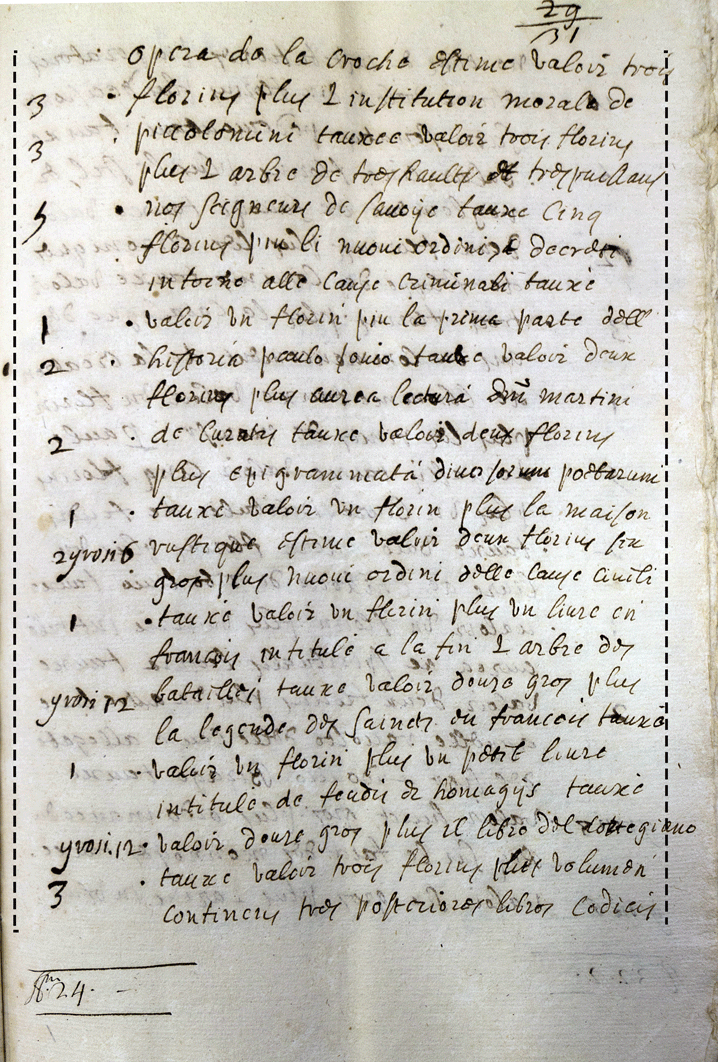 29
31
opera de la croche estime valoir trois
3 florins plus l institution morale de
3 piccolomini tauxee valoir trois florins
plus l arbre de treshaults et trespuissans
5 nos seigneurs de savoye tauxe cinq
florins piu li nuovi ordini et decreti
intorno alle cause criminali tauxe
1 valoir un florin piu la prima parte dell
2 historia paulo jovio tauxe valoir deux
florins plus aurea lectura dni martini
2 de curatis tauxe valoir deux florins
plus epigrammata diversorum poetarum
1 tauxe valoir un florin plus la maison
2 grosi 6 rustique estime valoir deux florins six
gros plus nuovi ordini delle cause civili
1 tauxe valoir un florin plus un livre en
francois intitule a la fin l arbre des
grosi 12 batailles tauxe valoir douze gros plus
la legende des saincts en francois tauxe
1 valoir un florin plus un petit livre
intitule de feudis et homagijs tauxe
grosi 12 valoir douze gros plus il libro del cortegiano
3 tauxe valoir trois florins plus volumen
continens tres posteriores libros codicis
24